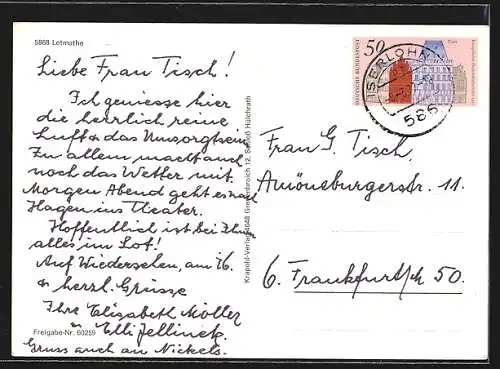 5868 Letmathe
Liebe Frau Tisch!
Ich geniesse hier
die herrlich reine
Luft & das Umsorgtsein
Zu allem macht auch
noch das Wetter mit.
Morgen Abend geht es nach
Hagen ins Theater.
Hoffentlich ist bei Ihnen
alles im Lot!
Auf Wiedersehen, am 16.
& herzl. Grüsse
Ihre Elisabeth Möller
Elli Jellineck.
Gruss auch an Nickels.
Freigabe-Nr. 60259
Krapohl-Verlag 4048 Grevenbroich 12, Schloß Hülchrath
50
DEUTSCHE BUNDESPOST
ISERLOHN
586
Frau G. Tisch
Amöneburgerstr. 11.
6. Frankfurt/M 50.